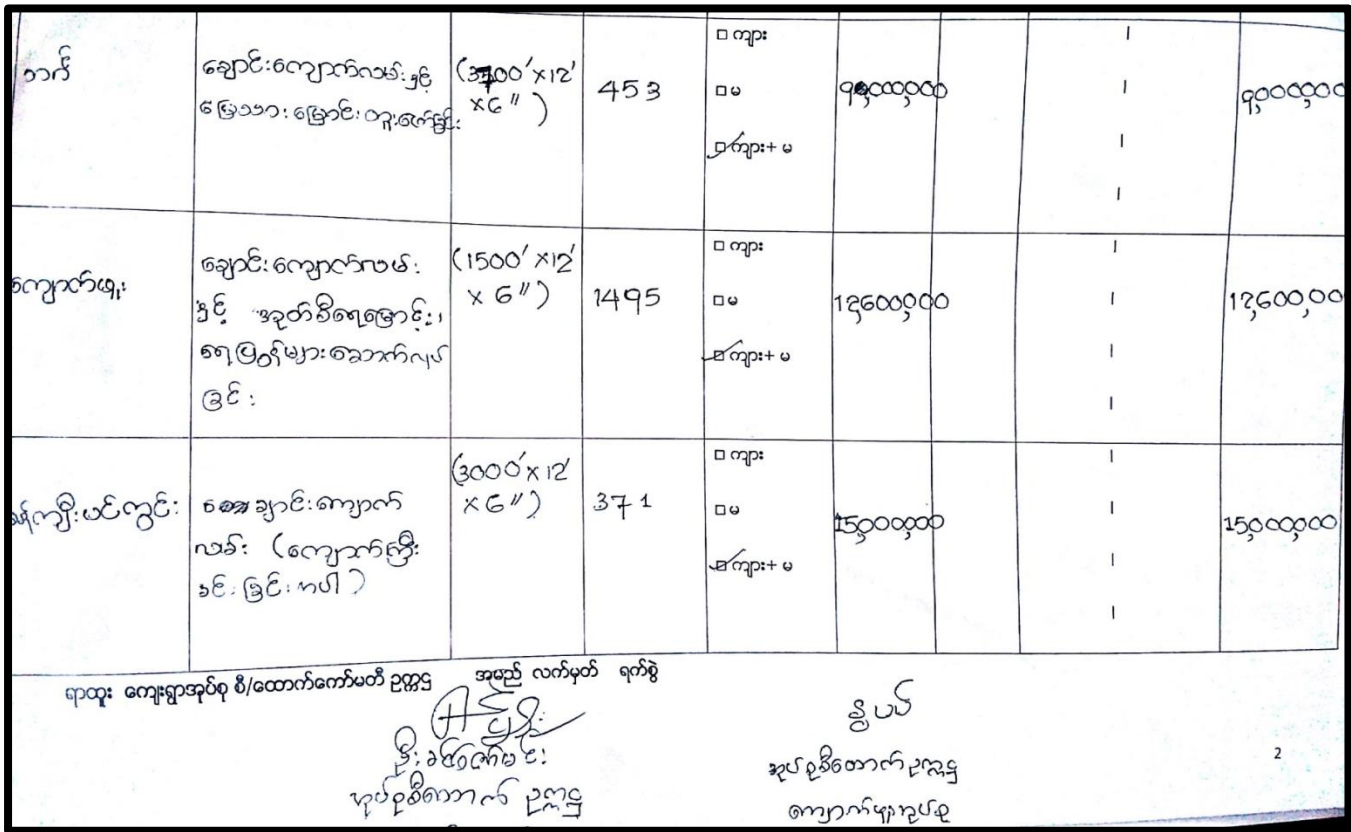 ဘက်
ချောင်းကျောက်လမ်းနှင့်
မြေသားမြောင်းတူးဖော်ခြင်း
(3700′×12′
×6″)
453
□ ကျား
□ မ
☑ ကျား+ မ
၅,၀၀၀,၀၀၀
ကျောက်ဖူး
ချောင်းကျောက်လမ်း
နှင့် အုတ်စီရေမြောင်း၊
ရေပြွန်များဆောက်လုပ်
ခြင်း
(1500′ ×12′
× 6″)
1495
□ ကျား
□ မ
☑ ကျား+ မ
ချောင်းကျောက်
လမ်း (ကျောက်ကြီး
ခင်းခြင်းကပါ)
(3000′×12′
×6″)
371
□ ကျား
□ မ
☑ ကျား+ မ
15,000,000
15,000,000
ရာထူး ကျေးရွာအုပ်စု စီ/ထောက်ကော်မတီ ဥက္ကဋ္ဌ အမည် လက်မှတ် ရက်စွဲ
အုပ်စုစီထောက် ဥက္ကဋ္ဌ
အုပ်စုစီထောက်ဥက္ကဋ္ဌ
ကျောက်ဖူးအုပ်စု
2